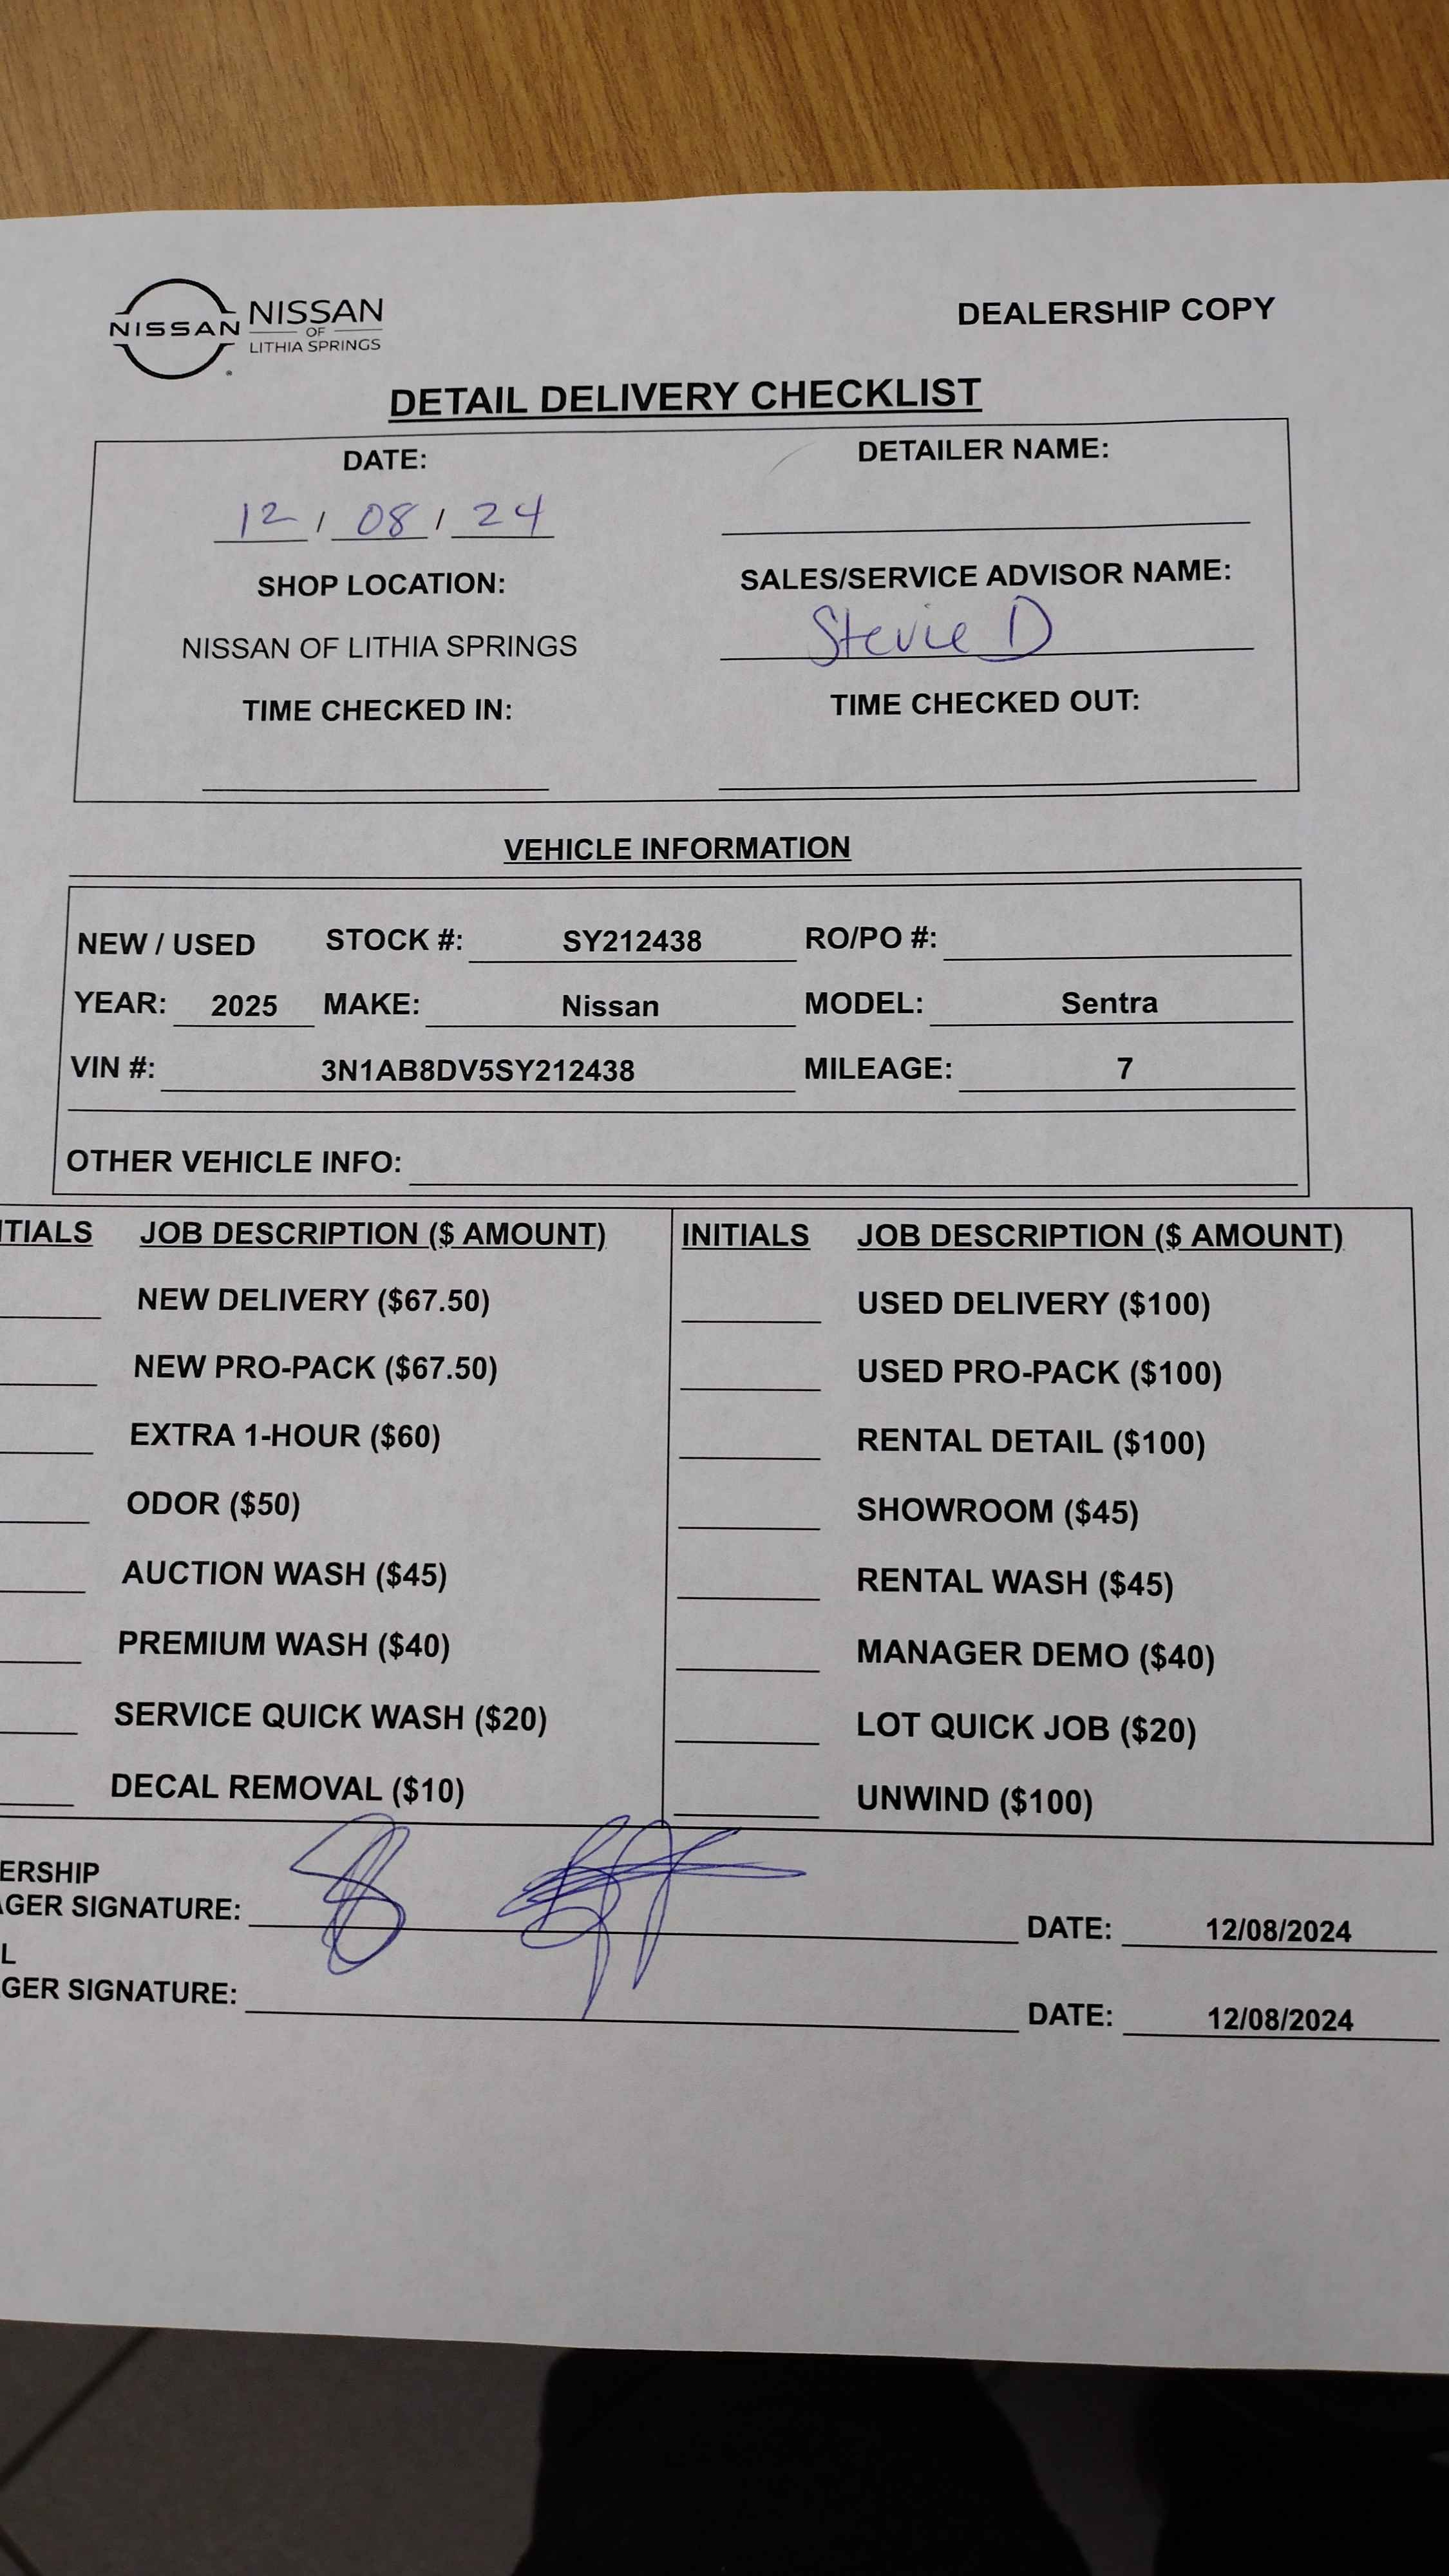 NISSAN NISSAN
OF
LITHIA SPRINGS
DEALERSHIP COPY
DETAIL DELIVERY CHECKLIST
DATE: DETAILER NAME:
12 / 08 / 24
SHOP LOCATION: SALES/SERVICE ADVISOR NAME:
NISSAN OF LITHIA SPRINGS Stevie D
TIME CHECKED IN: TIME CHECKED OUT:
VEHICLE INFORMATION
NEW / USED STOCK #: SY212438 RO/PO #:
YEAR: 2025 MAKE: Nissan MODEL: Sentra
VIN #: 3N1AB8DV5SY212438 MILEAGE: 7
OTHER VEHICLE INFO:
ITIALS JOB DESCRIPTION ($ AMOUNT) INITIALS JOB DESCRIPTION ($ AMOUNT)
NEW DELIVERY ($67.50) USED DELIVERY ($100)
NEW PRO-PACK ($67.50) USED PRO-PACK ($100)
EXTRA 1-HOUR ($60) RENTAL DETAIL ($100)
ODOR ($50) SHOWROOM ($45)
AUCTION WASH ($45) RENTAL WASH ($45)
PREMIUM WASH ($40) MANAGER DEMO ($40)
SERVICE QUICK WASH ($20) LOT QUICK JOB ($20)
DECAL REMOVAL ($10) UNWIND ($100)
ERSHIP
AGER SIGNATURE: DATE: 12/08/2024
L
GER SIGNATURE: DATE: 12/08/2024